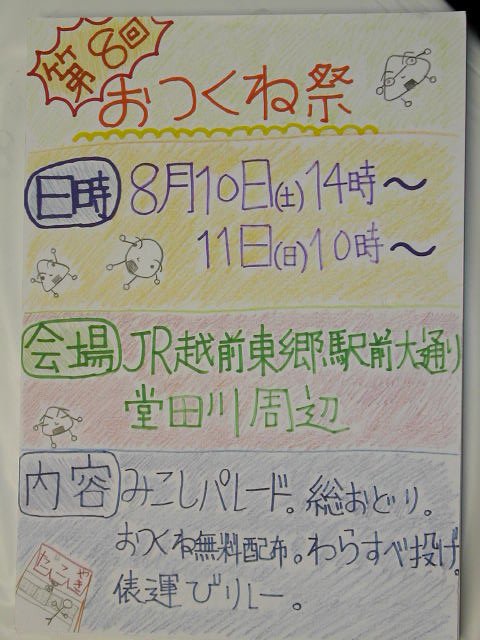 第8回
おつくね祭
日時 8月10日(土)14時〜
11日(日)10時〜
会場 JR越前東郷駅前大通り
堂田川周辺
内容 みこしパレード。総おどり。
おつくね無料配布。わらすべ投げ。
俵運びリレー。